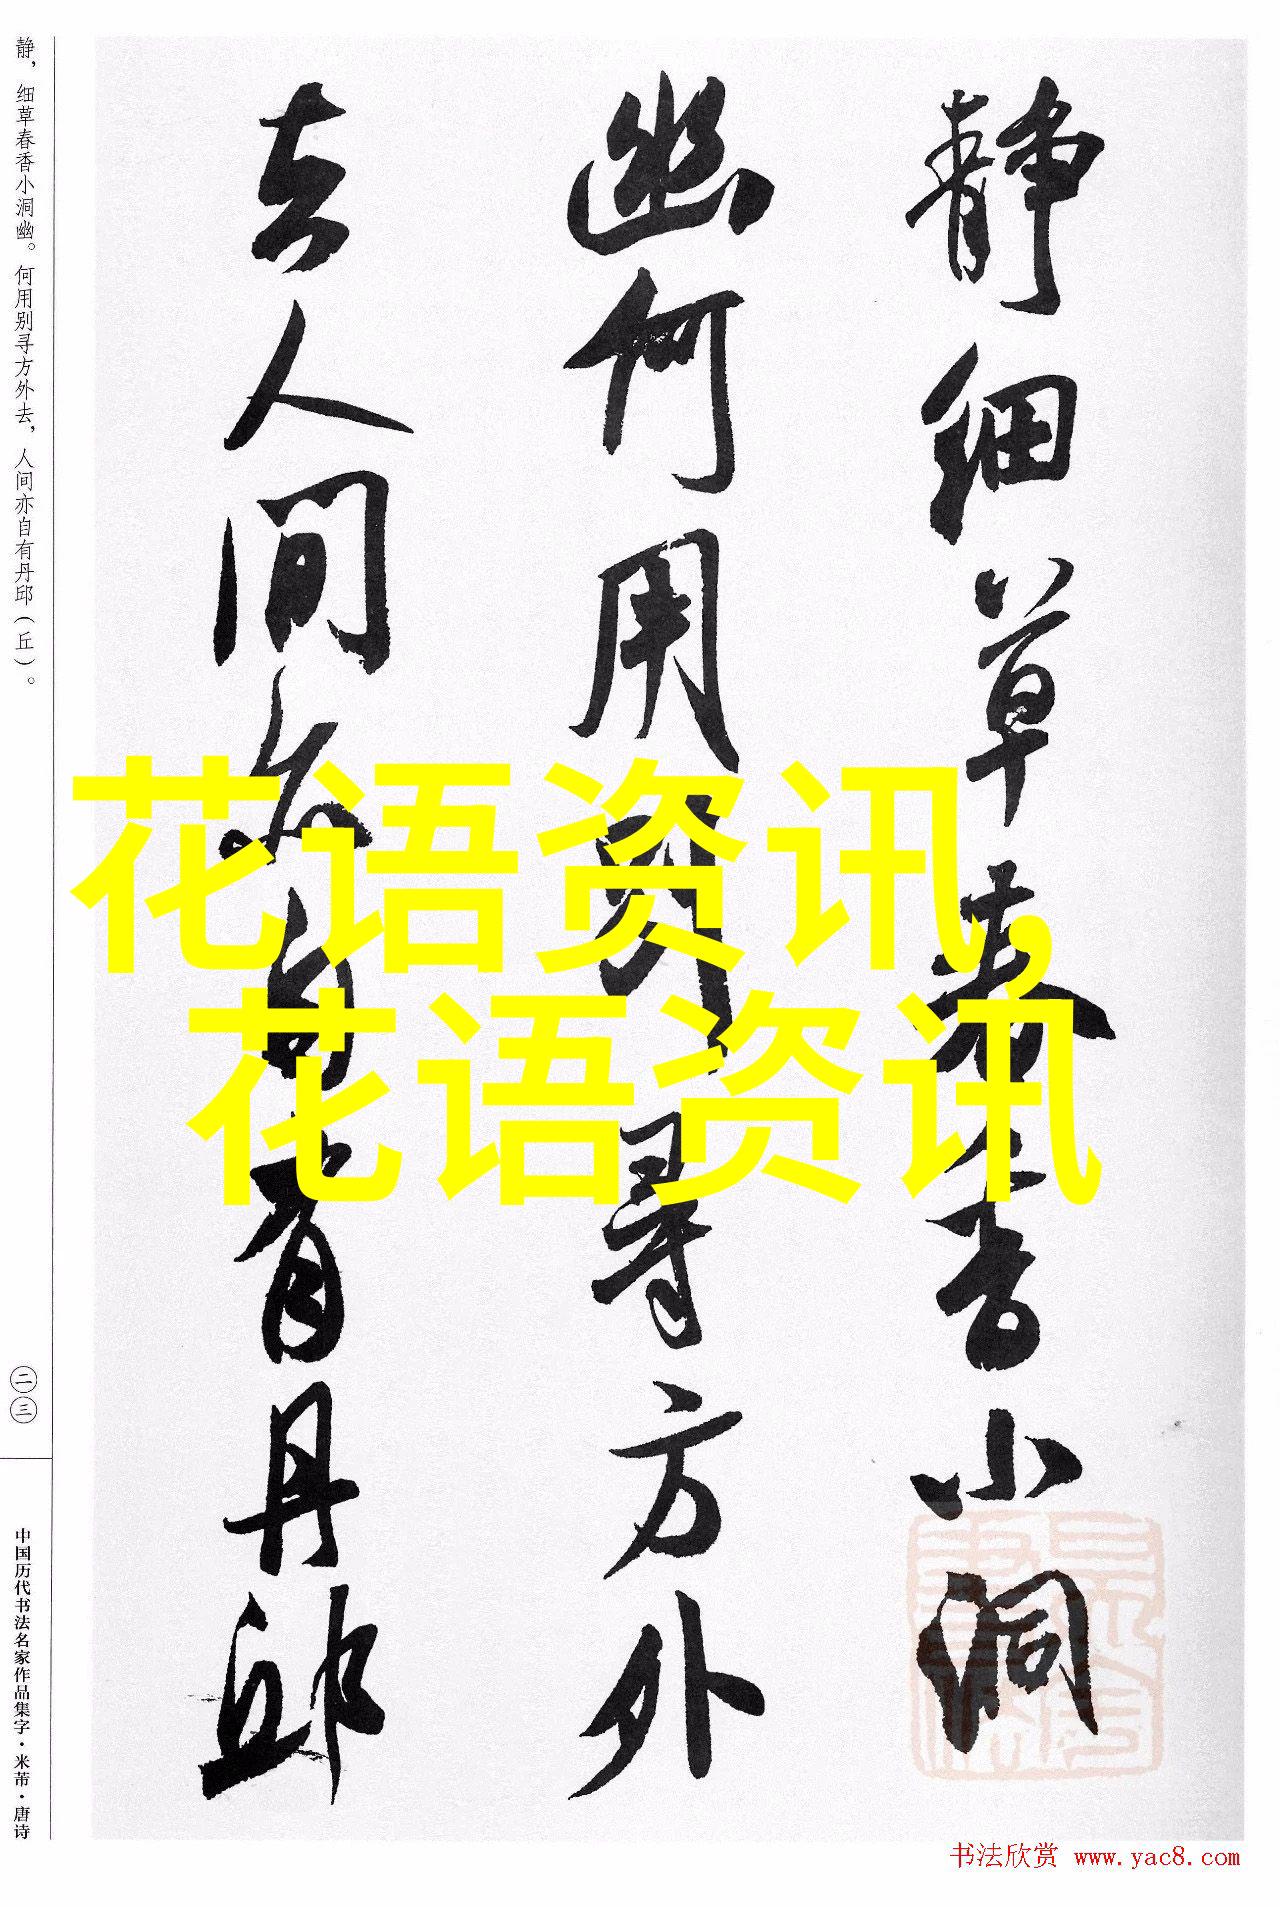 静细草春香小洞
幽何用别寻方外
去人间亦自有丹邱
花语资讯，
花语资讯
静，细草春香小洞幽。何用别寻方外去，人间亦自有丹邱（丘）。
二三
中国历代书法名家作品集字·米芾·唐诗
书法欣赏 www.yac8.com